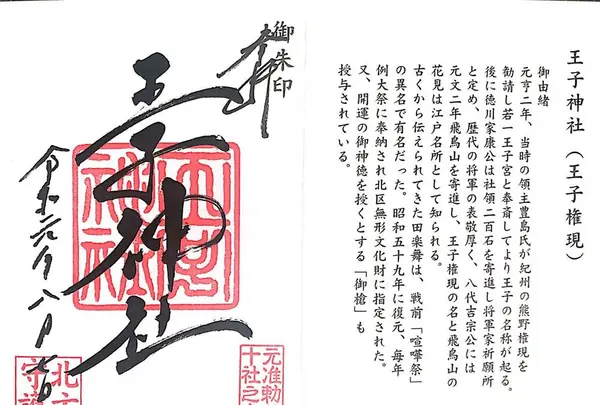 王子神社(王子権現)
御由緒
元亨二年、当時の領主豊島氏が紀州の熊野権現を
勧請し若一王子宮と奉斎してより王子の名称が起る。
後に徳川家康公は社領二百石を寄進し将軍家祈願所
と定め、歴代の将軍の表敬厚く、八代吉宗公には
元文二年飛鳥山を寄進し、王子権現の名と飛鳥山の
花見は江戸名所として知られる。
古くから伝えられてきた田楽舞は、戦前「喧嘩祭」
の異名で有名だった。昭和五十九年に復元、毎年
例大祭に奉納され北区無形文化財に指定された。
又、開運の御神徳を授くとする「御槍」も
授与されている。
御朱印
奉拝
王子神社
王子神社
元准勅
十社之
令和元年八月七日
北
守